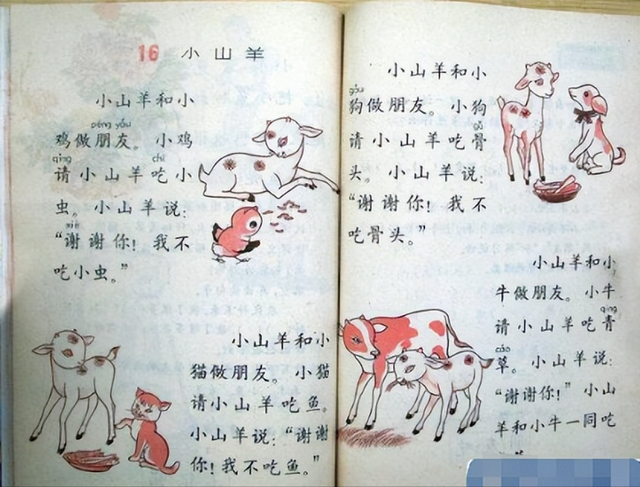 16 小山羊
小山羊和小
péng yǒu
鸡做朋友。小鸡
qǐng chī
请小山羊吃小
虫。小山羊说:
xiè
“谢谢你!我不
吃小虫。”
小山羊和小
猫做朋友。小猫
请小山羊吃鱼。
小山羊说:“谢谢
你!我不吃鱼。”
小山羊和小
gǒu
狗做朋友。小狗
gǔ
请小山羊吃骨
头。小山羊说:
“谢谢你!我不
吃骨头。”
小山羊和小
牛做朋友。小牛
qīng
请小山羊吃青
cǎo
草。小山羊说:
“谢谢你!”小山
羊和小牛一同吃